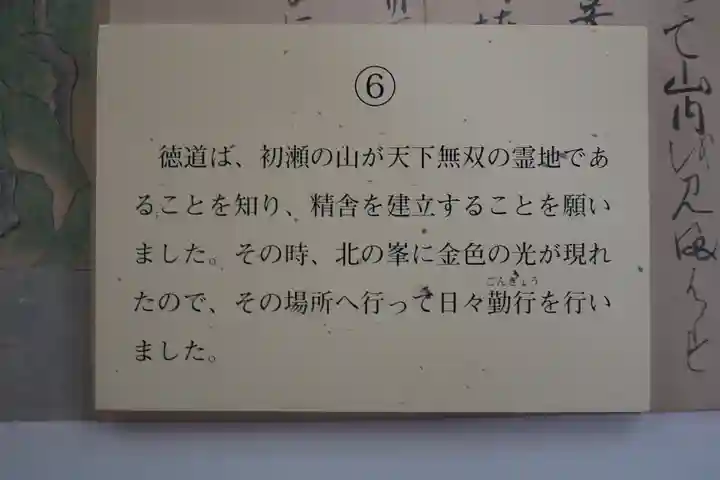 ⑥
徳道ば、初瀬の山が天下無双の霊地であ
ることを知り、精舎を建立することを願い
ました。その時、北の峯に金色の光が現れ
たので、その場所へ行って日々勤行を行い
ごんぎょう
ました。
て山内